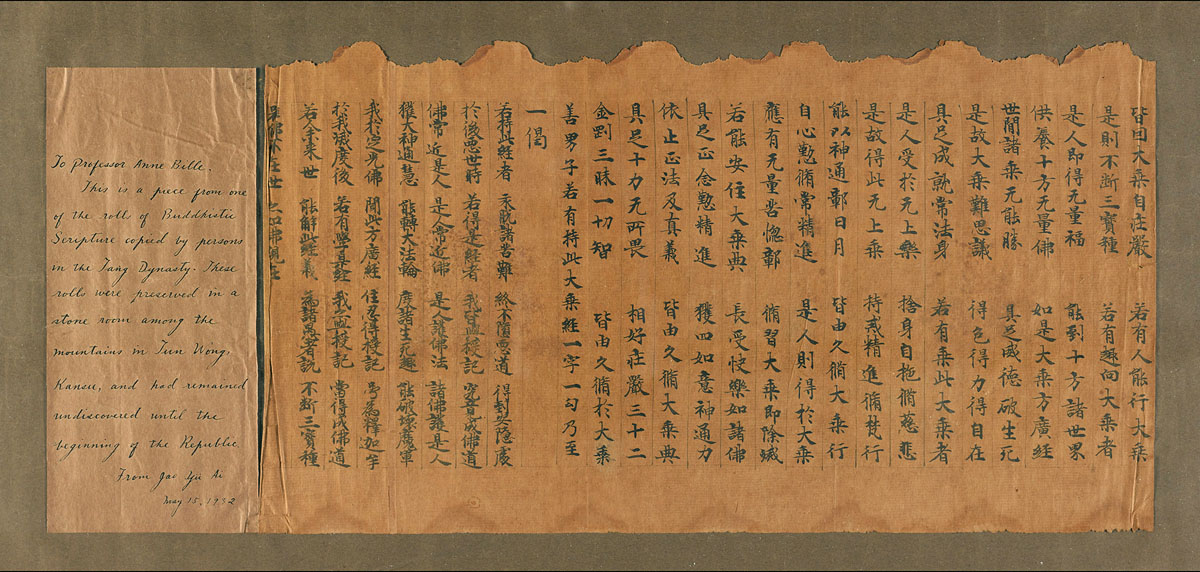 皆因大乘自庄嚴 若有人能行大乘
是則不断三寶種 若有趣向大乘者
是人即得无量福 能到十方諸世界
供養十方无量佛 如是大乘方廣經
世間諸乘无能勝 具足威德破生死
是故大乘難思議 得色得力得自在
具足成就常法身 若有乘此大乘者
是人受於无上樂 捨身自施脩慈悲
是故得此无上乘 持戒精進脩梵行
能以神通鄣日月 皆由久脩大乘行
自心懃脩常精進 是人則得於大乘
應有无量苦惱鄣 脩習大乘即除滅
若能安住大乘典 長受快樂如諸佛
具足正念懃精進 獲四如意神通力
依止正法及真義 皆由久脩大乘典
具足十力无所畏 相好庄嚴三十二
金剛三昧一切智 皆由久脩於大乘
善男子若有持此大乘經一字一勾乃至
一偈
若持此經者 永脱諸苦難 終不墮惡道 得到安隱處
於後惡世時 若得是經者 我皆與授記 究竟成佛道
佛常近是人 是人常近佛 是人護佛法 諸佛護是人
獲大神通慧 能轉大法輪 度諸生死趣 能破壞魔軍
我於定光佛 聞此方廣經 住忍得授記 号為釋迦牟
於我滅度後 若有學是經 我亦與授記 當得成佛道
若余未來世 能解此經義 為諸愚者說 不断三寶種
在世
To Professor Anne Bille.
This is a piece from one
of the rolls of Buddhistic
Scripture copied by persons
in the Tang Dynasty. These
rolls were preserved in a
stone room among the
mountains in Tun Wong,
Kansu, and had remained
undiscovered until the
beginning of the Republic
From Gao Yu Ai
May 15, 1932